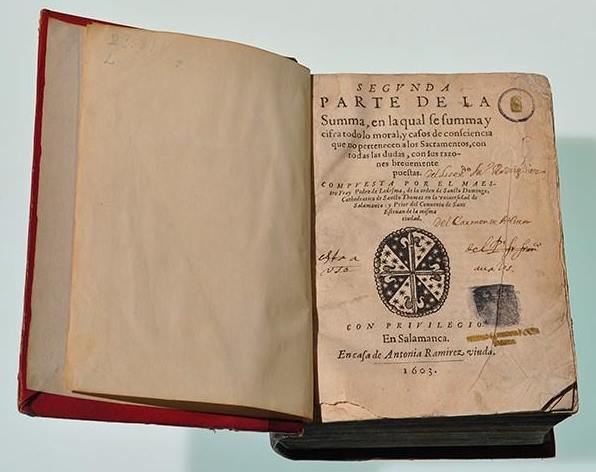 SEGVNDA
PARTE DE LA
Summa, en la qual se summa y
cifra todo lo moral, y casos de consciencia
que no pertenecen a los Sacramentos, con
todas las dudas, con sus razo-
nes breuemente
puestas.
COMPVESTA POR EL MAES-
tro Fray Pedro de Ledesma, de la orden de Sancto Domingo,
Cathedratico de Sancto Thomas en la vniuersidad de
Salamanca: y Prior del Conuento de Sant
Esteuan de la misma
ciudad.
del Carmen de
CON PRIVILEGIO.
En Salamanca.
En casa de Antonia Ramirez viuda.
1603.